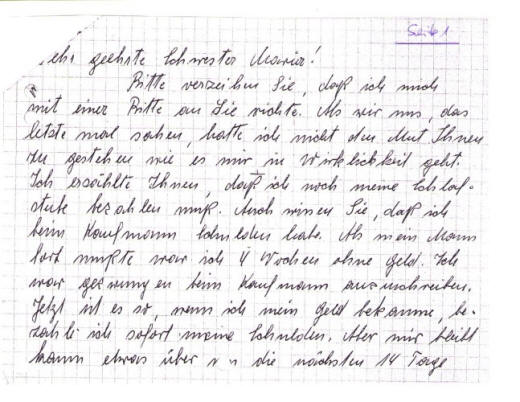 Seite 1
ehr geehrte Schwester Maria!
Bitte verzeihen Sie, daß ich mich
mit einer Bitte an Sie richte. Als wir uns, das
letzte mal sahen, hatte ich nicht den Mut Ihnen
zu gestehen wie es mir in Wirklichkeit geht.
Ich erzählte Ihnen, daß ich noch meine Schlaf-
stube bezahlen muß. Auch wissen Sie, daß ich
beim Kaufmann Schulden habe. Als mein Mann
fort mußte war ich 4 Wochen ohne Geld. Ich
war gezwungen beim Kaufmann anzuschreiben.
Jetzt ist es so, wenn ich mein Geld bekomme, be-
zahle ich sofort meine Schulden. Aber mir bleibt
kaum etwas über die nächsten 14 Tage